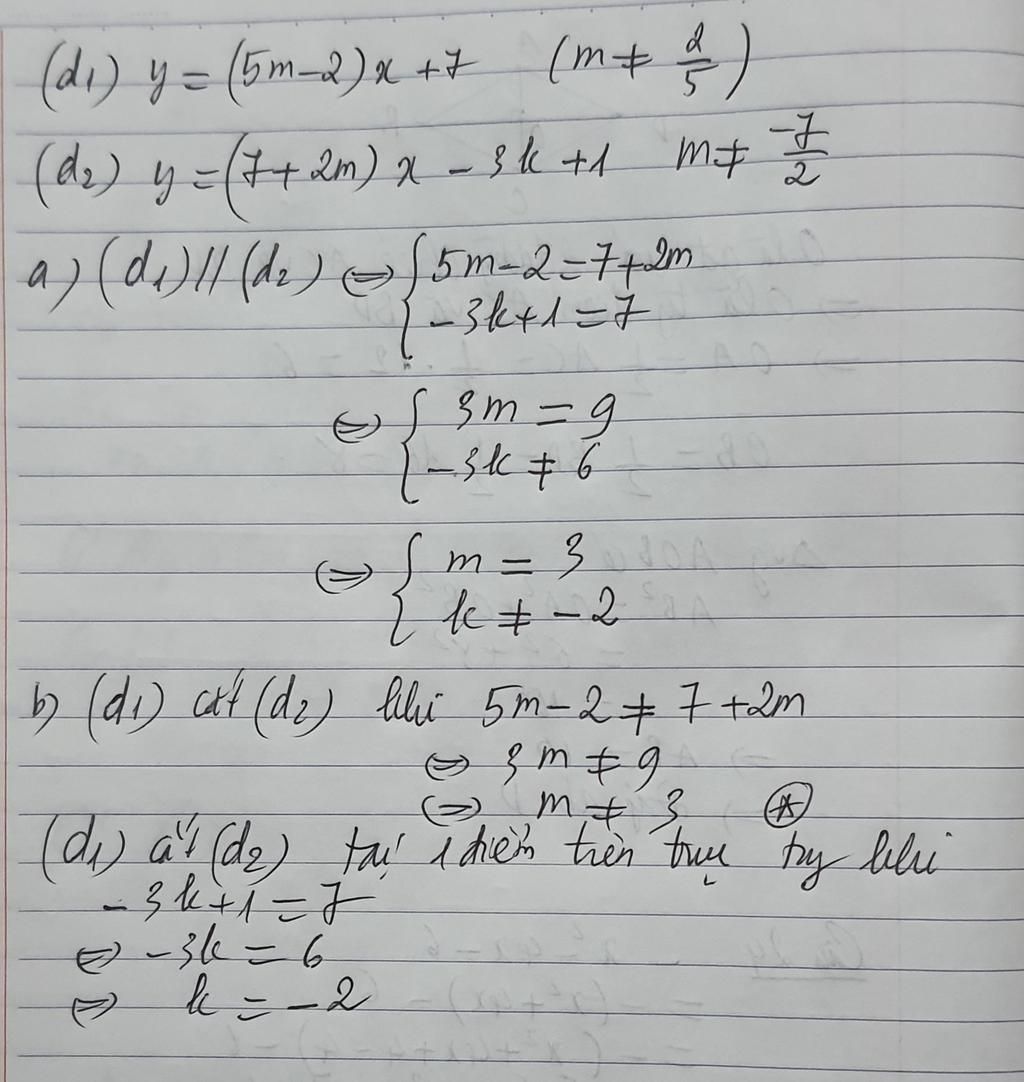 (d1) y = (5m-2)x + 7 (m ≠ 2/5)
(d2) y = (7+2m) x - 3k + 1 m ≠ -7/2
a) (d1) // (d2) ⇔ { 5m-2 = 7+2m
-3k+1 = 7
⇔ { 3m = 9
-3k ≠ 6
⇔ { m = 3
k ≠ -2
b) (d1) cắt (d2) khi 5m-2 ≠ 7+2m
⇔ 3m ≠ 9
⇔ m ≠ 3 (*)
(d1) cắt (d2) tại 1 điểm trên trục tung khi
-3k+1 = 7
⇔ -3k = 6
⇔ k = -2